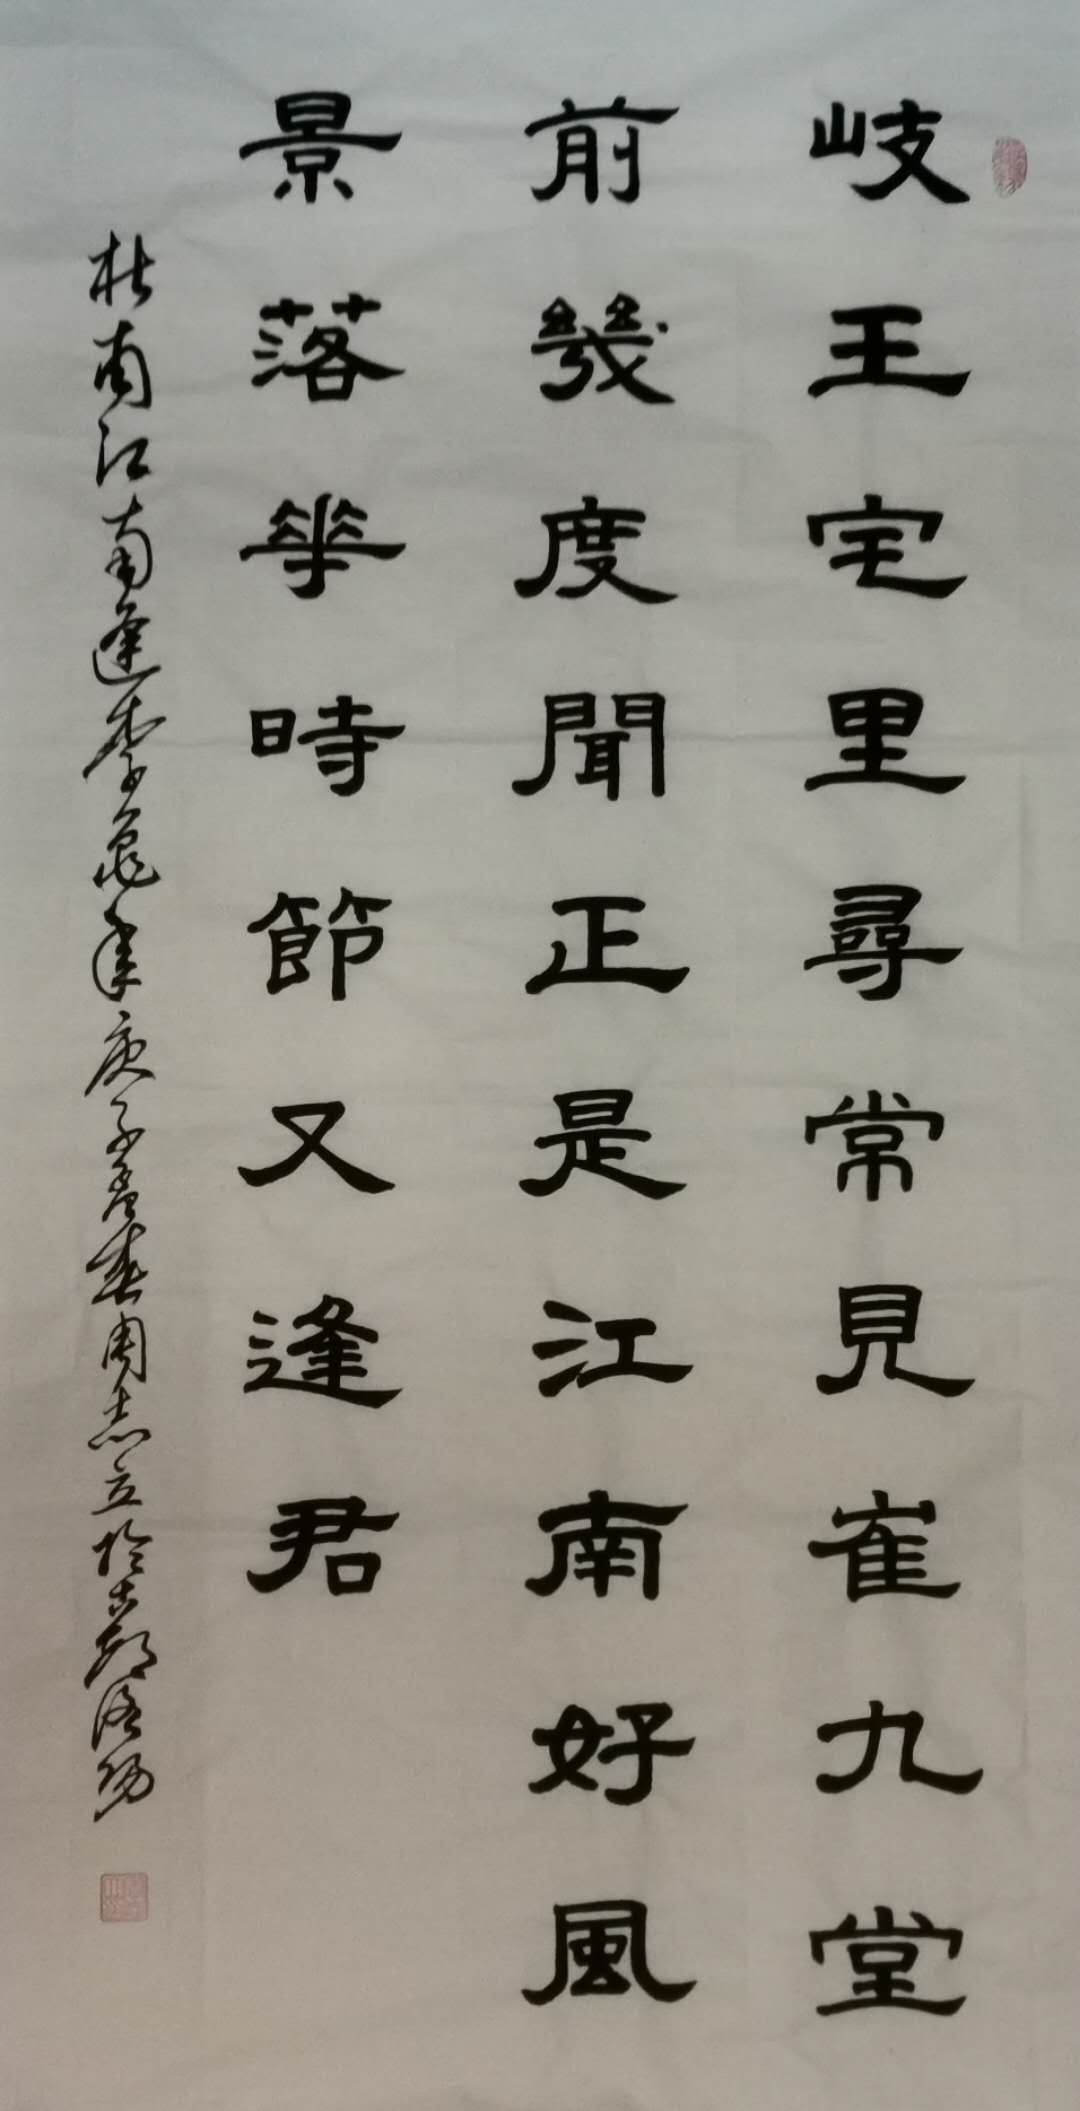 岐王宅里尋常見崔九堂
前幾度聞正是江南好風
景落華時節又逢君
杜甫江南逢李龜年庚子孟春周志立於古都洛陽